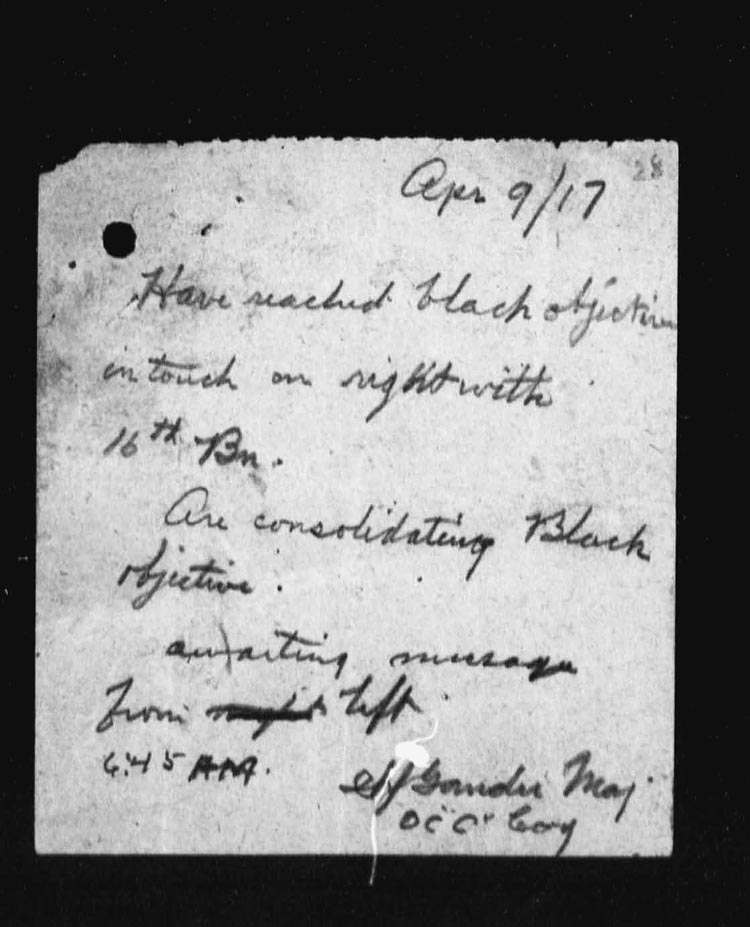 28
Apr 9/17
Have reached black objective
in touch on right with
16th Bn.
Are consolidating Black
objective.
awaiting message
from right left
6:45 AM.
Maj
OC "C" Coy